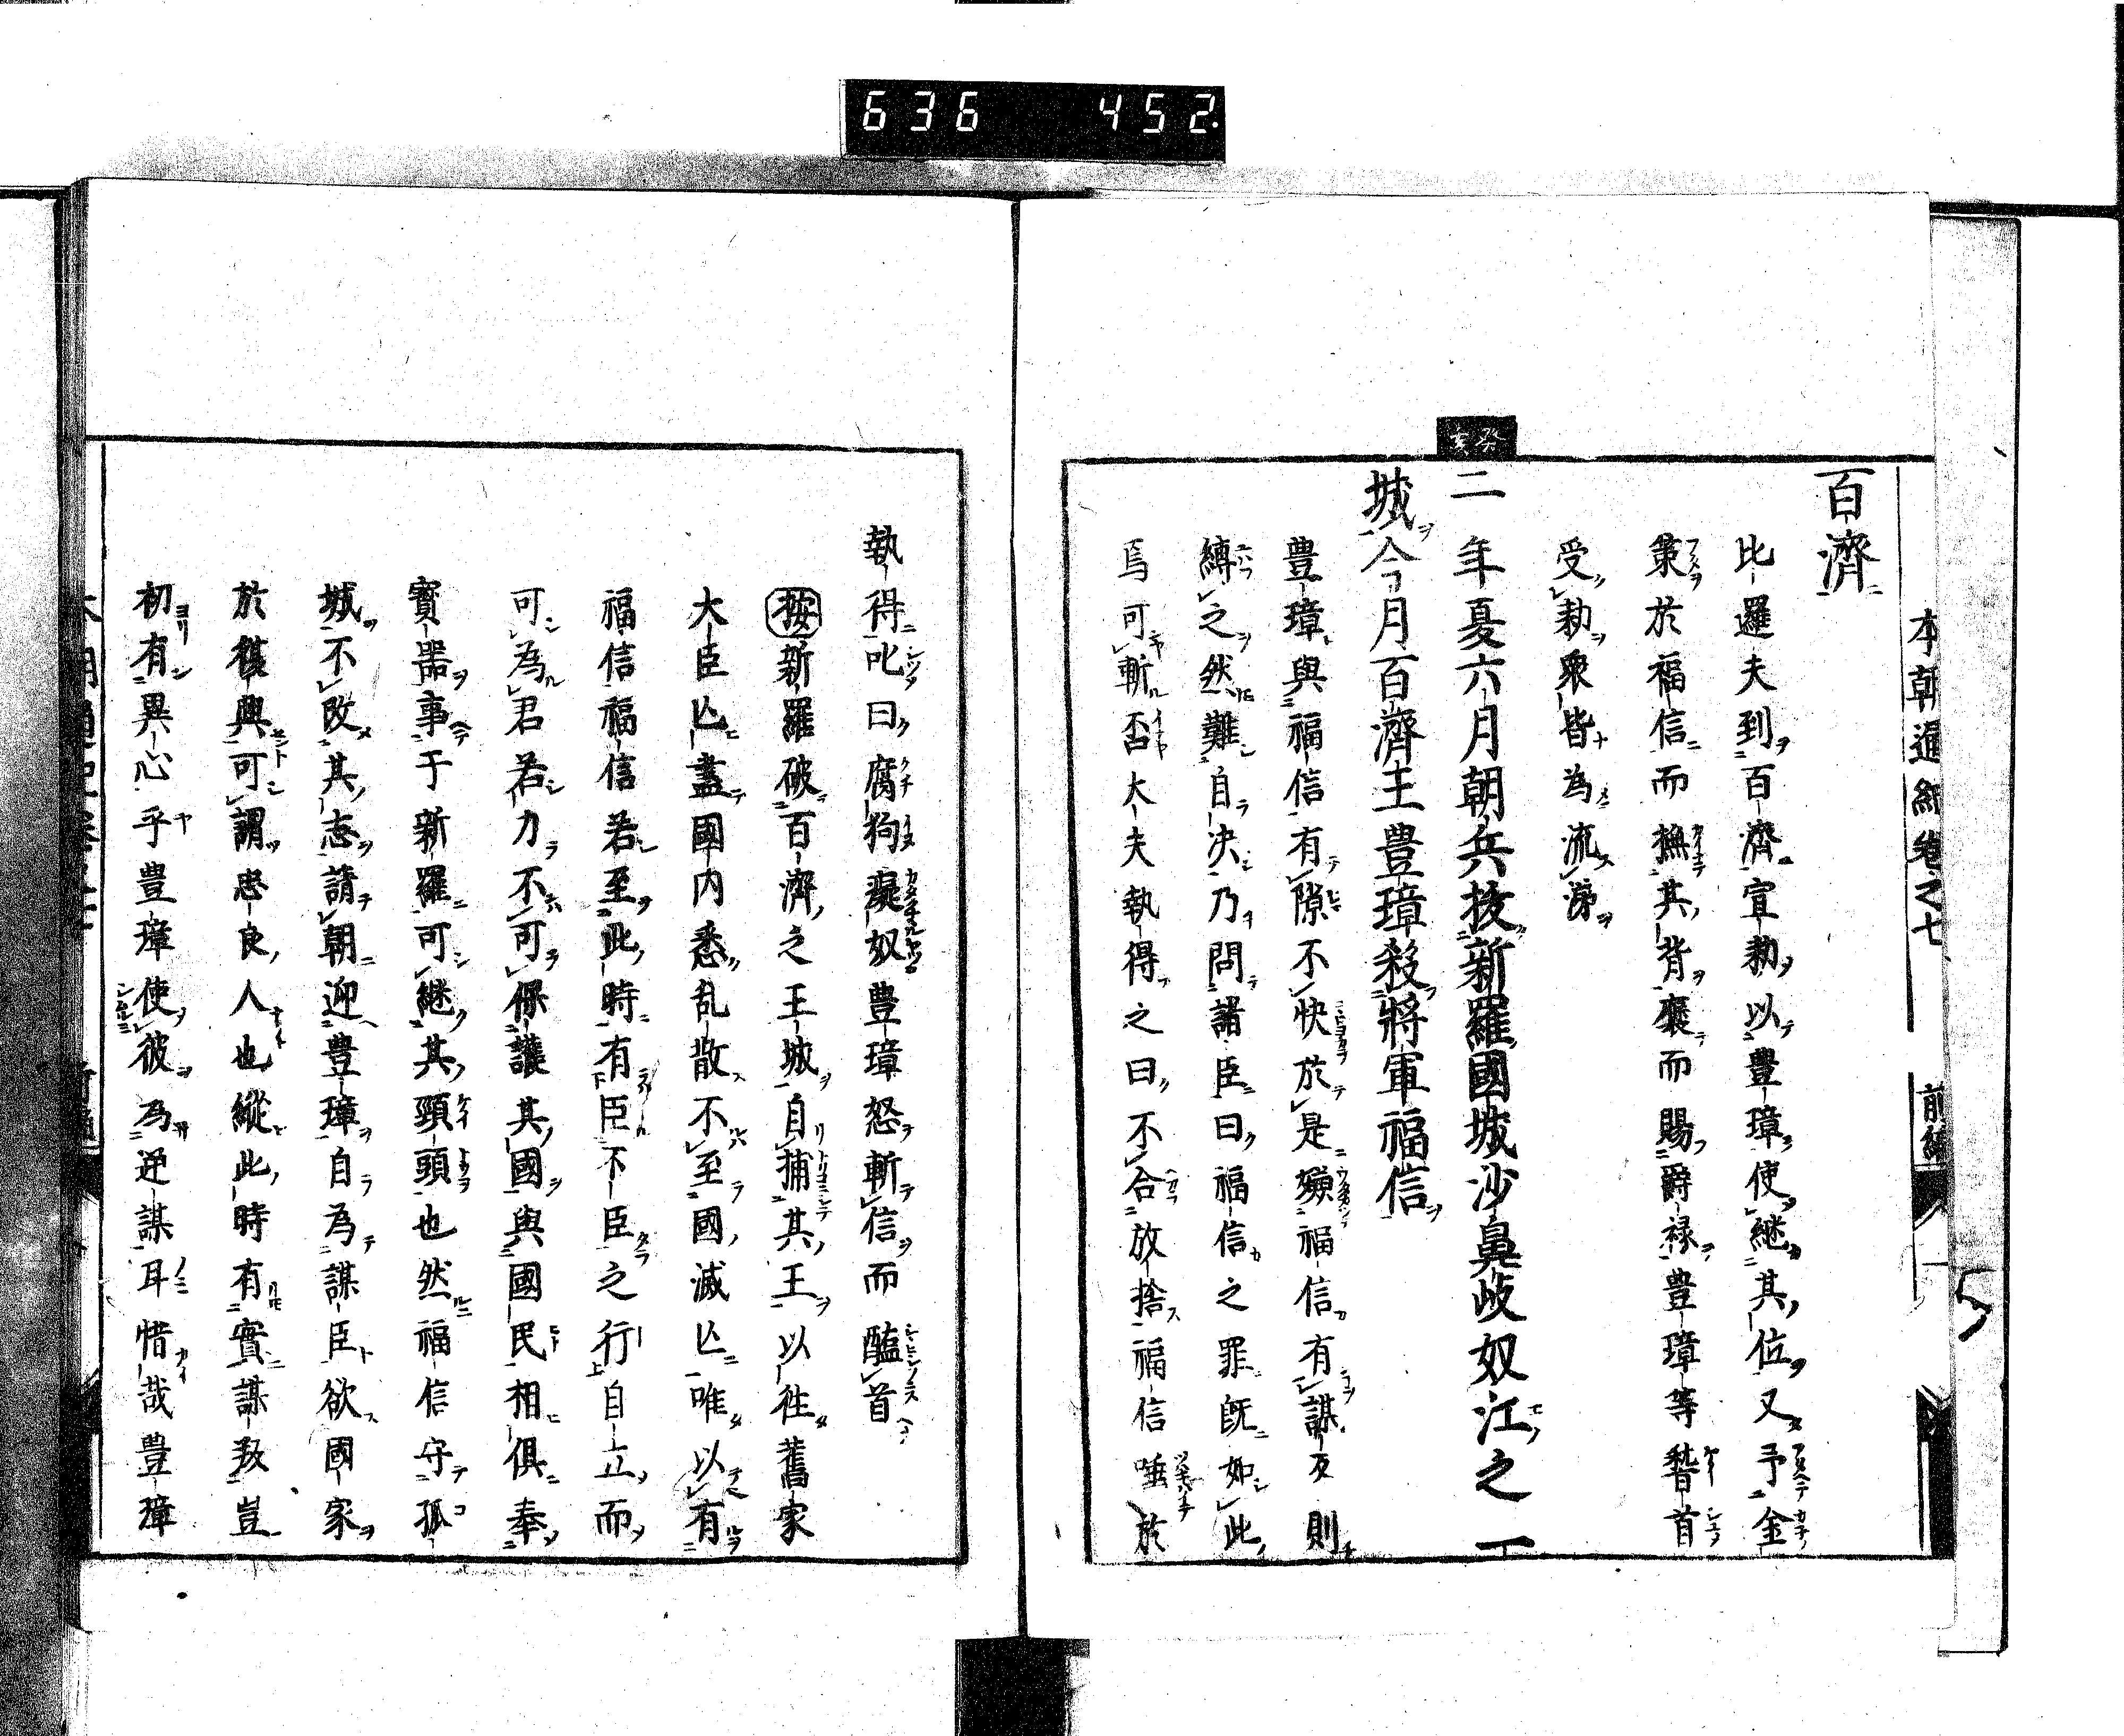 636 452
本朝通紀卷之七 前編
癸亥
百濟
比羅夫到百濟宣勅以豊璋使継其位又予金
策於福信而撫其背褒而賜爵禄豊璋等䭬首
受勅衆皆為流涕
二年夏六月朝兵抜新羅國城沙鼻岐奴江之二
城今月百濟王豊璋殺将軍福信
豊璋與福信有隙不快於是嫌福信有謀反則
縛之然難自决乃問諸臣曰福信之罪既如此
焉可斬否大夫執得之曰不合放捨福信唾於
執得叱曰腐狗癡奴豊璋怒斬信而醢首
按新羅破百濟之王城自捕其王以往舊家
大臣亾盡國内悉乱散不至國滅亾唯以有
福信福信若至此時有臣不臣之行自立而
可為君若力不可保護其國與國民相俱奉
寳噐事于新羅可継其頸頭也然福信守孤
城不改其志請朝迎豊璋自為謀臣欲國家
於復興可謂忠良人也縱此時有實謀叛豈
初有異心乎豊璋使彼為逆謀耳惜哉豊璋
5